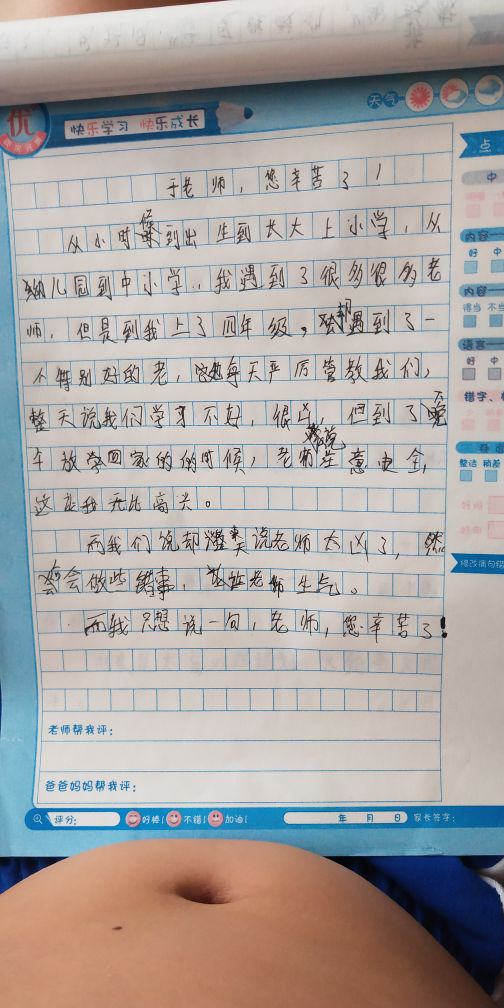 天气
优
快乐学习 快乐成长
点
于老师，您辛苦了！
中
从小时候到出生到长大上小学，从
内容
好 中
幼儿园到中小学，我遇到了很多很多老
内容
得当 不当
师，但是到我上了四年级，却遇到了一
语言
好 中
个特别好的老，每天严厉管教我们，
错字、
整天说我们学习不好，很凶，但到了下晚
午放学回家的的时候，老师注意安全，
整洁 稍差
这让我无比高兴。
而我们说却整天说老师太凶了，
会做些错事，让老师生气。
修改病句错
而我只想说一句，老师，您辛苦了！
老师帮我评：
爸爸妈妈帮我评：
评分： 好棒！ 不错！ 加油！ 年 月 日 家长签字：